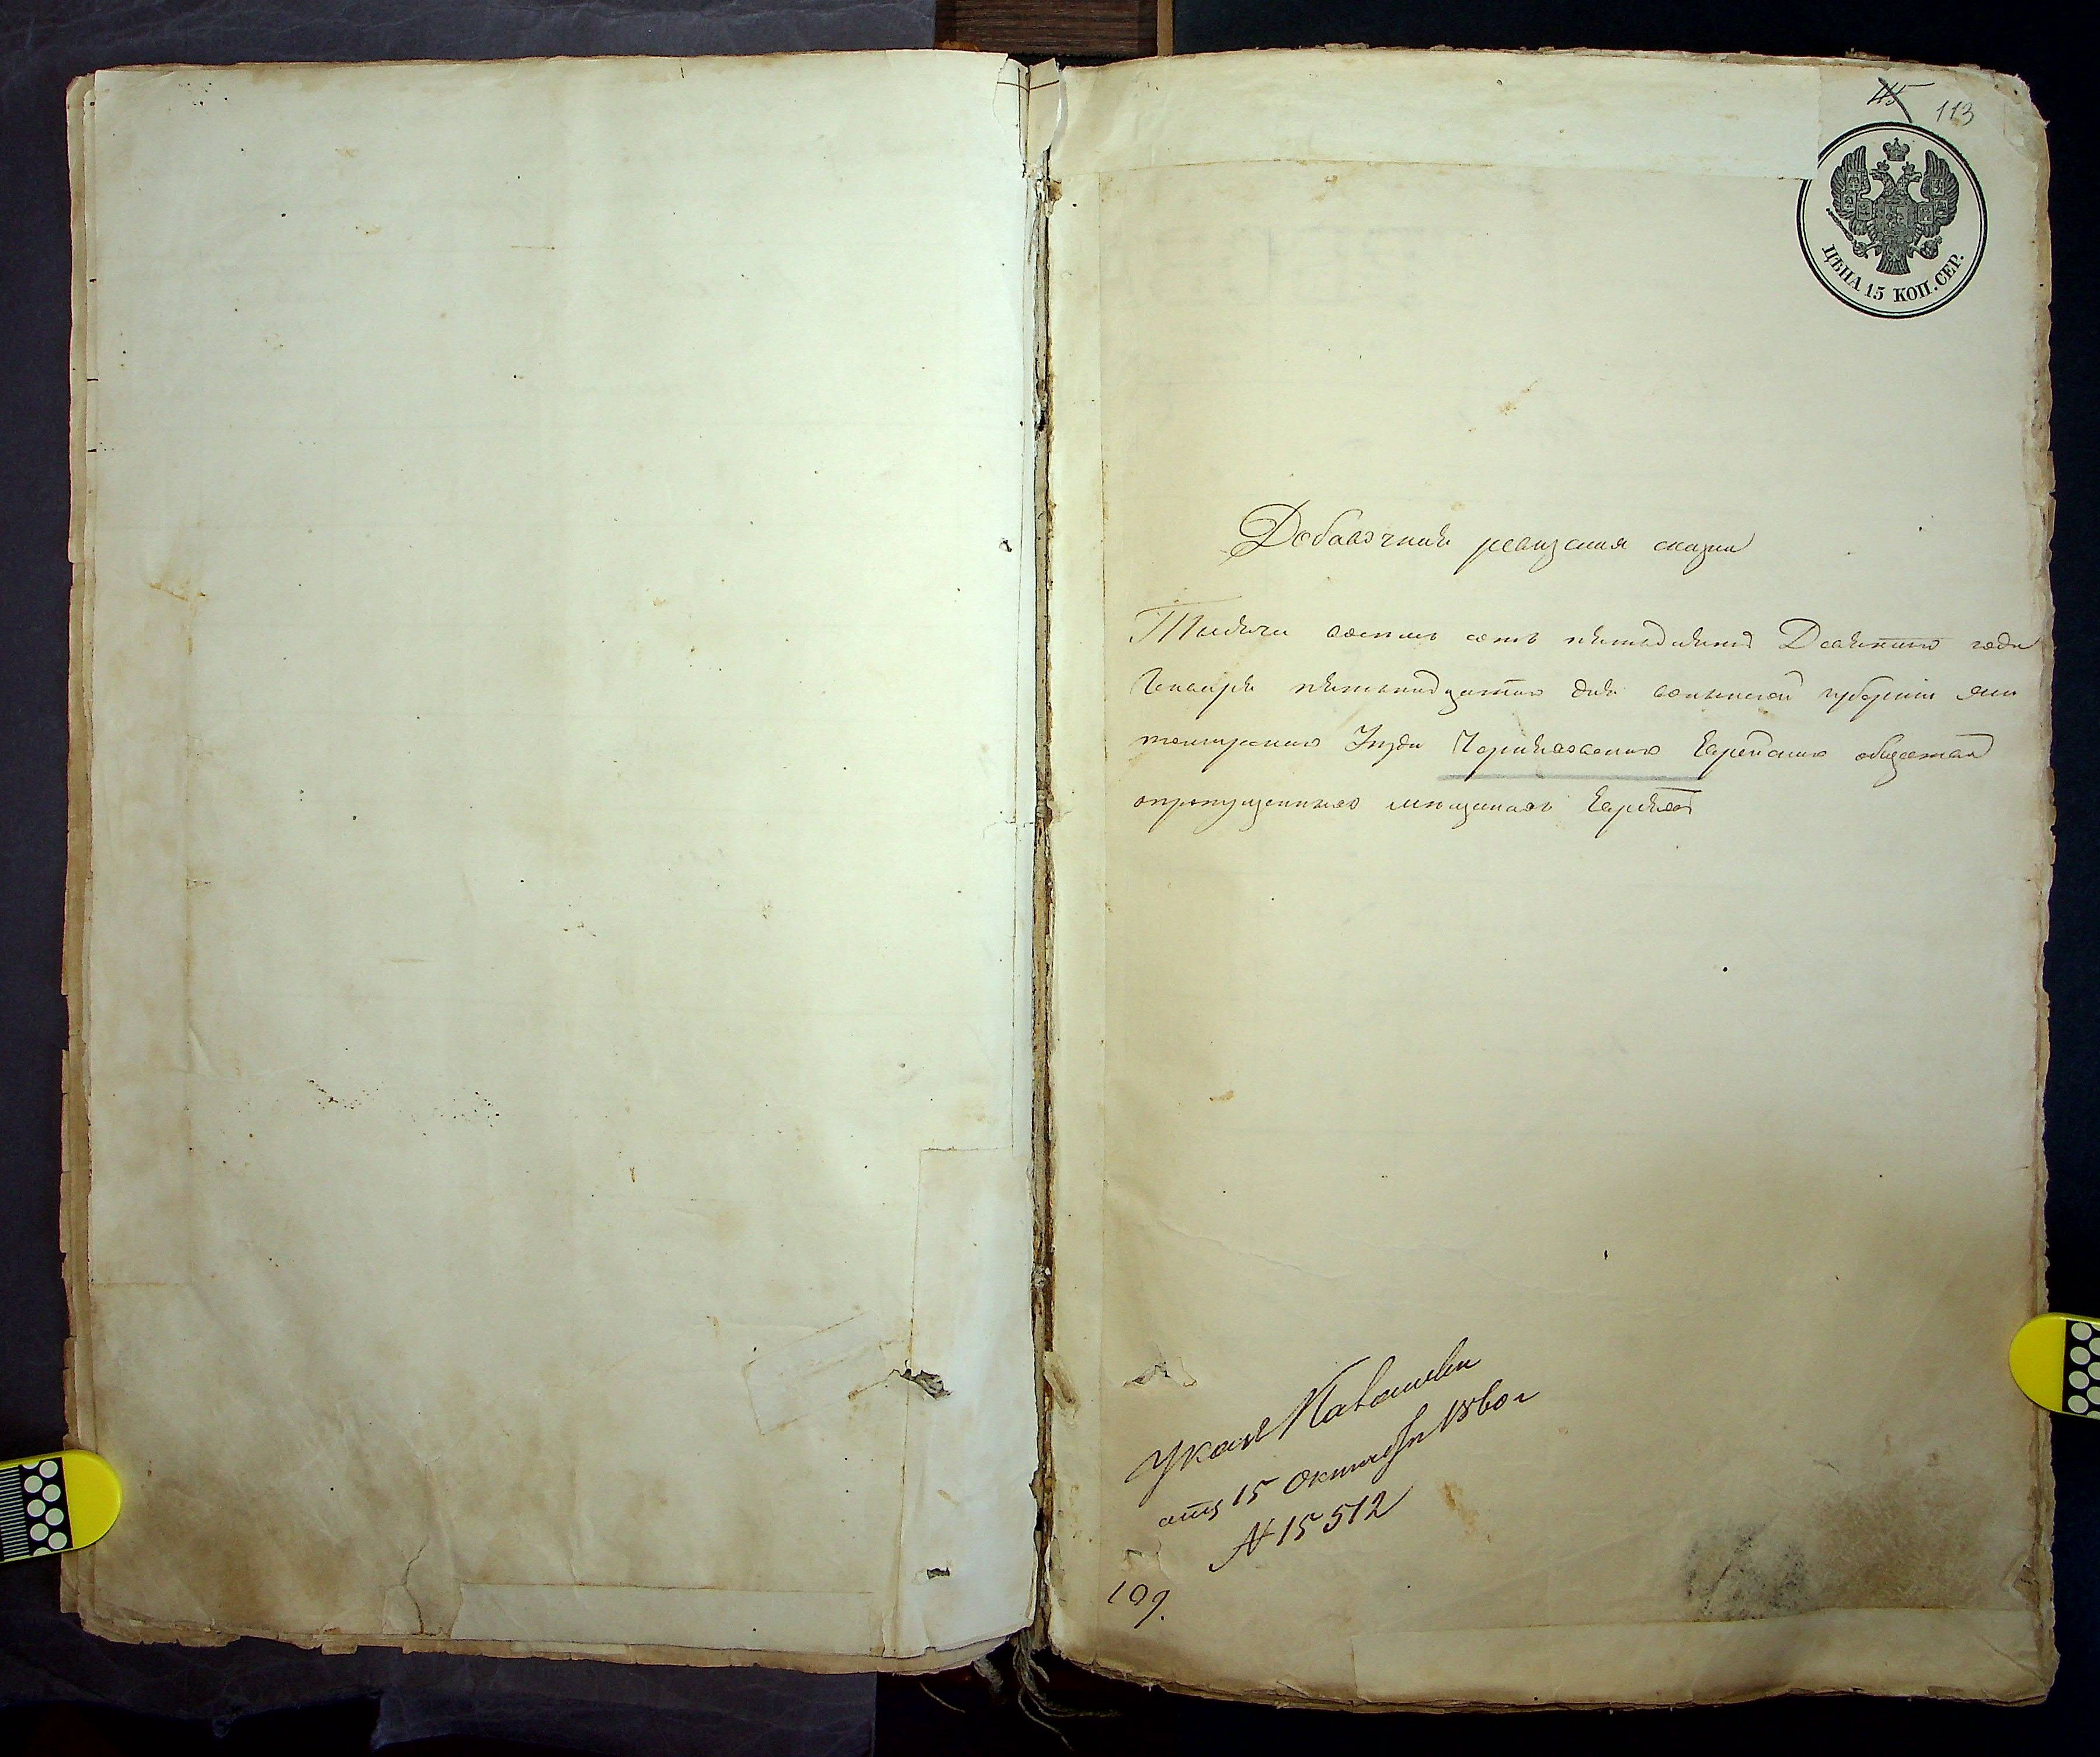 115 113
ЦѢНА 15 КОП. СЕР.
Добавочная ревизская сказка
Тысяча восемь сотъ пятьдесятъ Девятаго года
Генваря пятьнадцатаго дня волынской губерніи жи
томирскаго Уѣзда Черняховскаго Еврейскаго общества
опропущенныхъ мещанахъ Евреяхъ
Указъ Палаты
отъ 15 октября 1860 г
№ 15512
109.